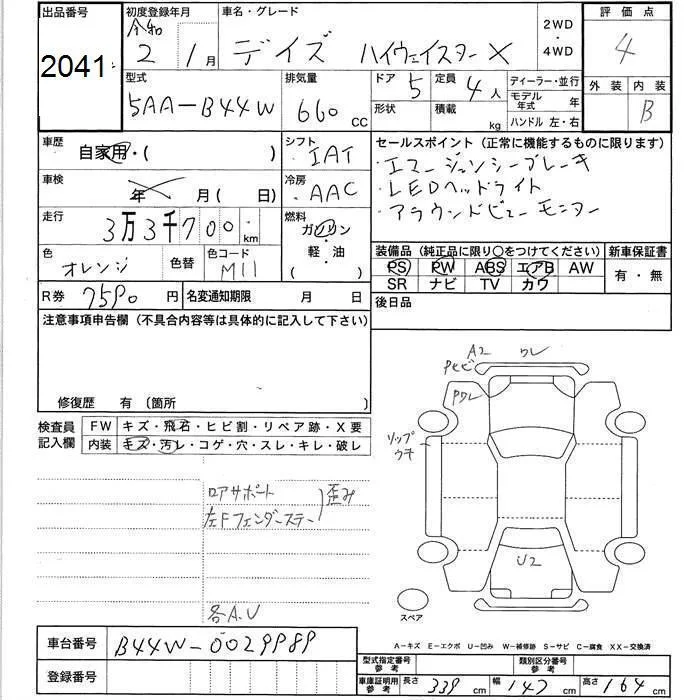 出品番号 初度登録年月 車名・グレード 2WD・4WD 評価点
2041 令和 2 1月 デイズ ハイウェイスターX 4
型式 排気量 ドア 定員 ディーラー・並行 外装 内装
5AA-B44W 660cc 5 4人 モデル年式 年 B
形状 積載 kg ハンドル 左・右
車歴 シフト セールスポイント (正常に機能するものに限ります)
自家用・( ) IAT ・エマージェンシーブレーキ
車検 冷房 ・LEDヘッドライト
年 月( 日) AAC ・アラウンドビューモニター
走行 燃料
3万3千700km ガソリン・軽油( )
色 色替 色コード 装備品 (純正品に限り○をつけてください) 新車保証書
オレンジ M11 PS PW ABS エアB AW 有・無
R券 7590円 名変通知期限 月 日 SR ナビ TV カワ
注意事項申告欄 (不具合内容等は具体的に記入して下さい) 後日品
修復歴 有 〔箇所 〕
検査員記入欄 FW キズ・飛石・ヒビ割・リペア跡・X要
内装 キズ・汚レ・コゲ・穴・スレ・キレ・破レ
A2 ワレ
PセビPワレ
リップ
ウキ
ロアサポート
左Fフェンダーステー 歪み
U2
各A.U
スペア
A-キズ E-エクボ U-凹み W-補修跡 S-サビ C-腐食 XX-交換済
車台番号 B44W-0029989
登録番号
型式指定番号 参考 類別区分番号 参考
車庫証明用 参考 長さ 339cm 幅 147cm 高さ 164cm